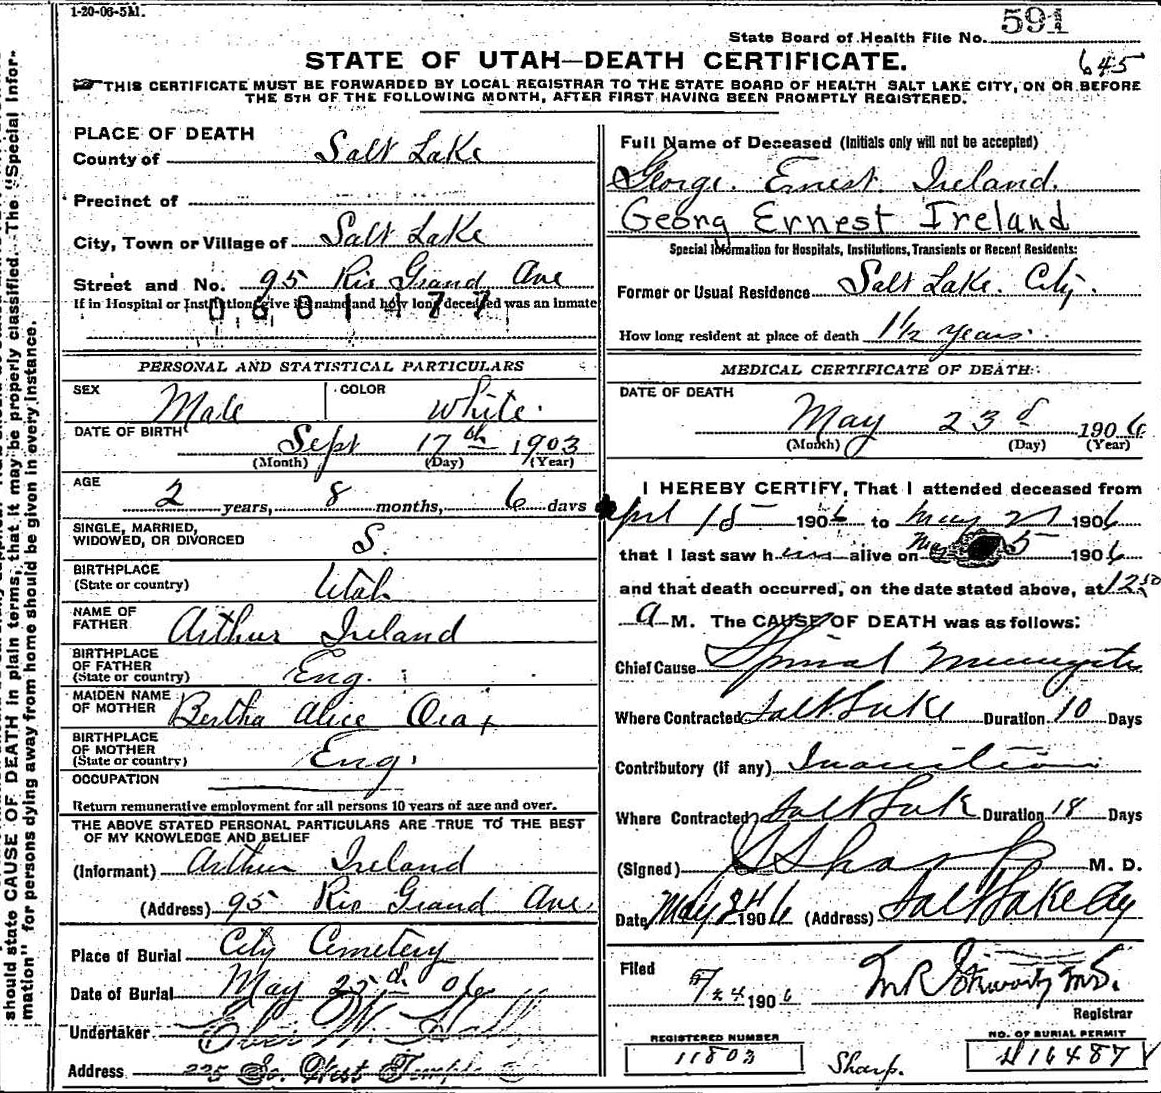 1-20-06-5M.
591
State Board of Health File No.
STATE OF UTAH—DEATH CERTIFICATE.
645
THIS CERTIFICATE MUST BE FORWARDED BY LOCAL REGISTRAR TO THE STATE BOARD OF HEALTH SALT LAKE CITY, ON OR BEFORE
THE 5TH OF THE FOLLOWING MONTH, AFTER FIRST HAVING BEEN PROMPTLY REGISTERED.
should state CAUSE OF DEATH in plain terms, that it may be properly classified. The "Special Infor-
mation" for persons dying away from home should be given in every instance.
PLACE OF DEATH
County of Salt Lake
Precinct of
City, Town or Village of Salt Lake
Street and No. 95 Rio Grand Ave
If in Hospital or Institution give its name and how long deceased was an inmate
0601477
PERSONAL AND STATISTICAL PARTICULARS
SEX Male COLOR White.
DATE OF BIRTH Sept 17th 1903
(Month) (Day) (Year)
AGE
2 years, 8 months, 6 days
SINGLE, MARRIED,
WIDOWED, OR DIVORCED S.
BIRTHPLACE
(State or country) Utah
NAME OF
FATHER Arthur Ireland
BIRTHPLACE
OF FATHER
(State or country) Eng.
MAIDEN NAME
OF MOTHER Bertha Alice
BIRTHPLACE
OF MOTHER
(State or country) Eng.
OCCUPATION
Return remunerative employment for all persons 10 years of age and over.
THE ABOVE STATED PERSONAL PARTICULARS ARE TRUE TO THE BEST
OF MY KNOWLEDGE AND BELIEF
(Informant) Arthur Ireland
(Address) 95 Rio Grand Ave
Place of Burial City Cemetery
Date of Burial May 25d 06
Undertaker
Address 225 So. West Temple
Full Name of Deceased (Initials only will not be accepted)
George. Ernest. Ireland.
Georg Ernest Ireland
Special Information for Hospitals, Institutions, Transients or Recent Residents:
Former or Usual Residence Salt Lake. City.
How long resident at place of death 1½ years.
MEDICAL CERTIFICATE OF DEATH
DATE OF DEATH
May 23d 1906
(Month) (Day) (Year)
I HEREBY CERTIFY, That I attended deceased from
Aprl 15 1906 to May 1906
that I last saw him alive on May 1906
and that death occurred, on the date stated above, at 12 50
a M. The CAUSE OF DEATH was as follows:
Chief Cause Spinal Meningitis
Where Contracted Salt Lake Duration 10 Days
Contributory (if any) Inanition
Where Contracted Salt Lake Duration 18 Days
(Signed) Sharp M. D.
Date May 24 1906 (Address) Salt Lake City
Filed 5/24 1906
Registrar
REGISTERED NUMBER
11803
Sharp.
NO. OF BURIAL PERMIT
16487